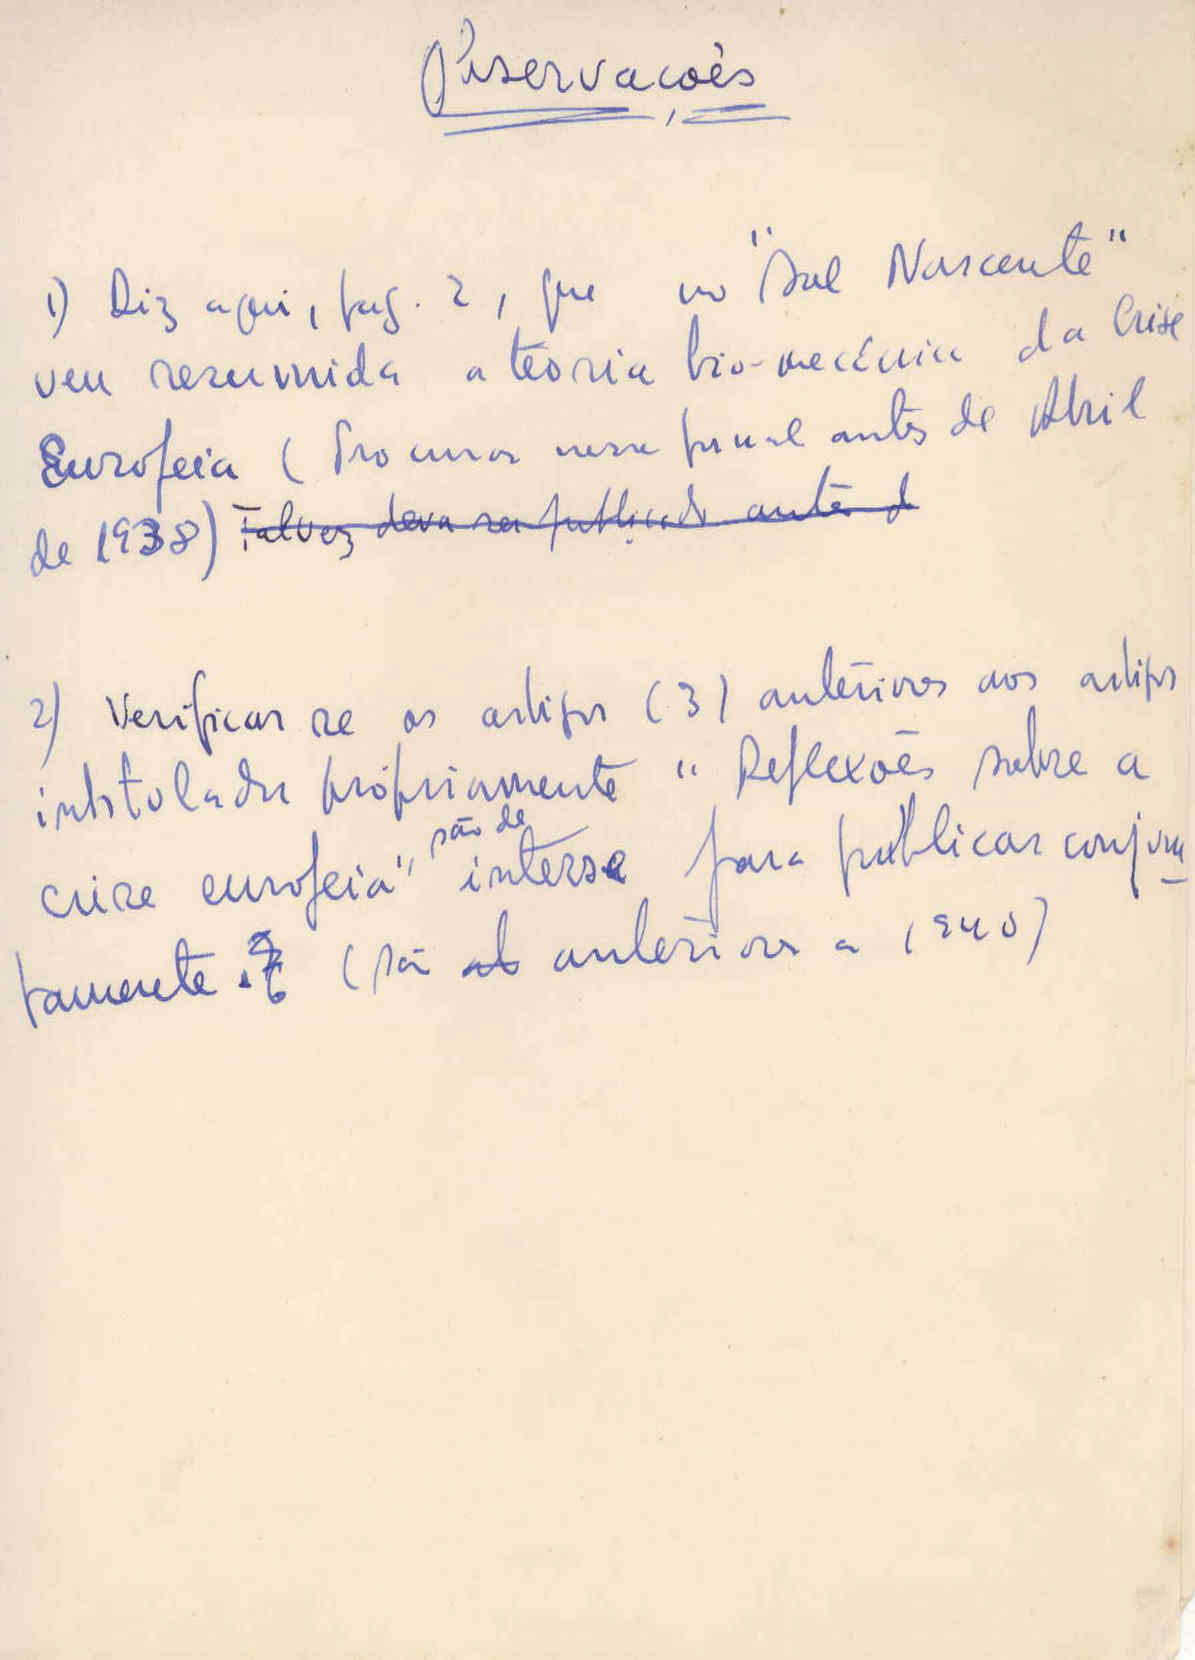 Observações
1) Diz aqui, pag. 2, que no "Sol Nascente"
vem resumida a teoria bio-mecânica da Crise
Europeia (Procurar nesse jornal antes de Abril
de 1938) Talvez deva ser publicado antes d
2) Verificar se os artigos (3) anteriores aos artigos
intitulados própriamente "Reflexões sobre a
crise europeia", são de interesse para publicar conjun
tamente. (São anteriores a 1940)